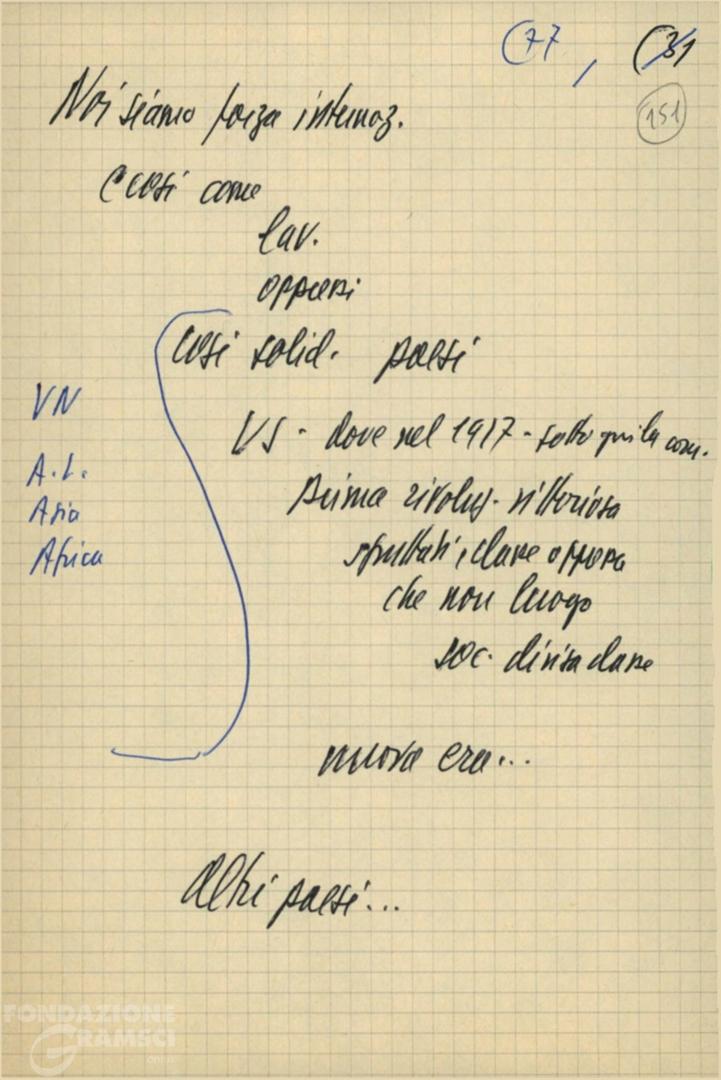 (77, (31
151
Noi siamo forza internaz.
E così come
lav.
oppressi
Così solid. paesi
VN
US - dove nel 1917 - sotto guida com.
A.L.
prima rivoluz. vittoriosa
Asia
sfruttati, classe oppressa
Africa
che non luogo
soc. divisa classe
nuova era...
Altri paesi...
FONDAZIONE
GRAMSCI
ONLUS